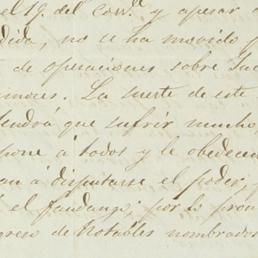 el 19. del corr.te y apesar d
dida, no se ha movido p
de operaciones sobre Tuc
imores. La suerte de este
tendra que sufrir mucho,
pone á todos y le obedecen
an á disputarse el poder, y
el fandango, por lo pron
greso de Notables nombrados